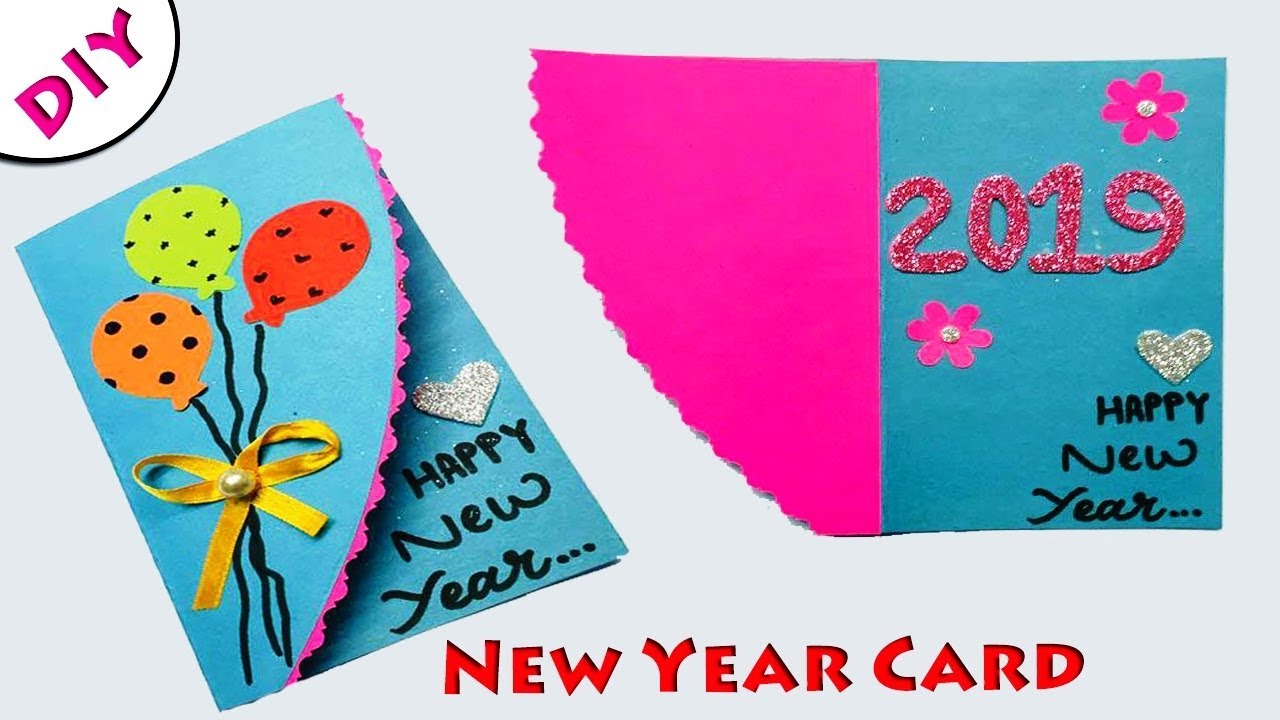 DIY
HAPPY
New
Year...
2019
HAPPY
New
Year...
NEW YEAR CARD